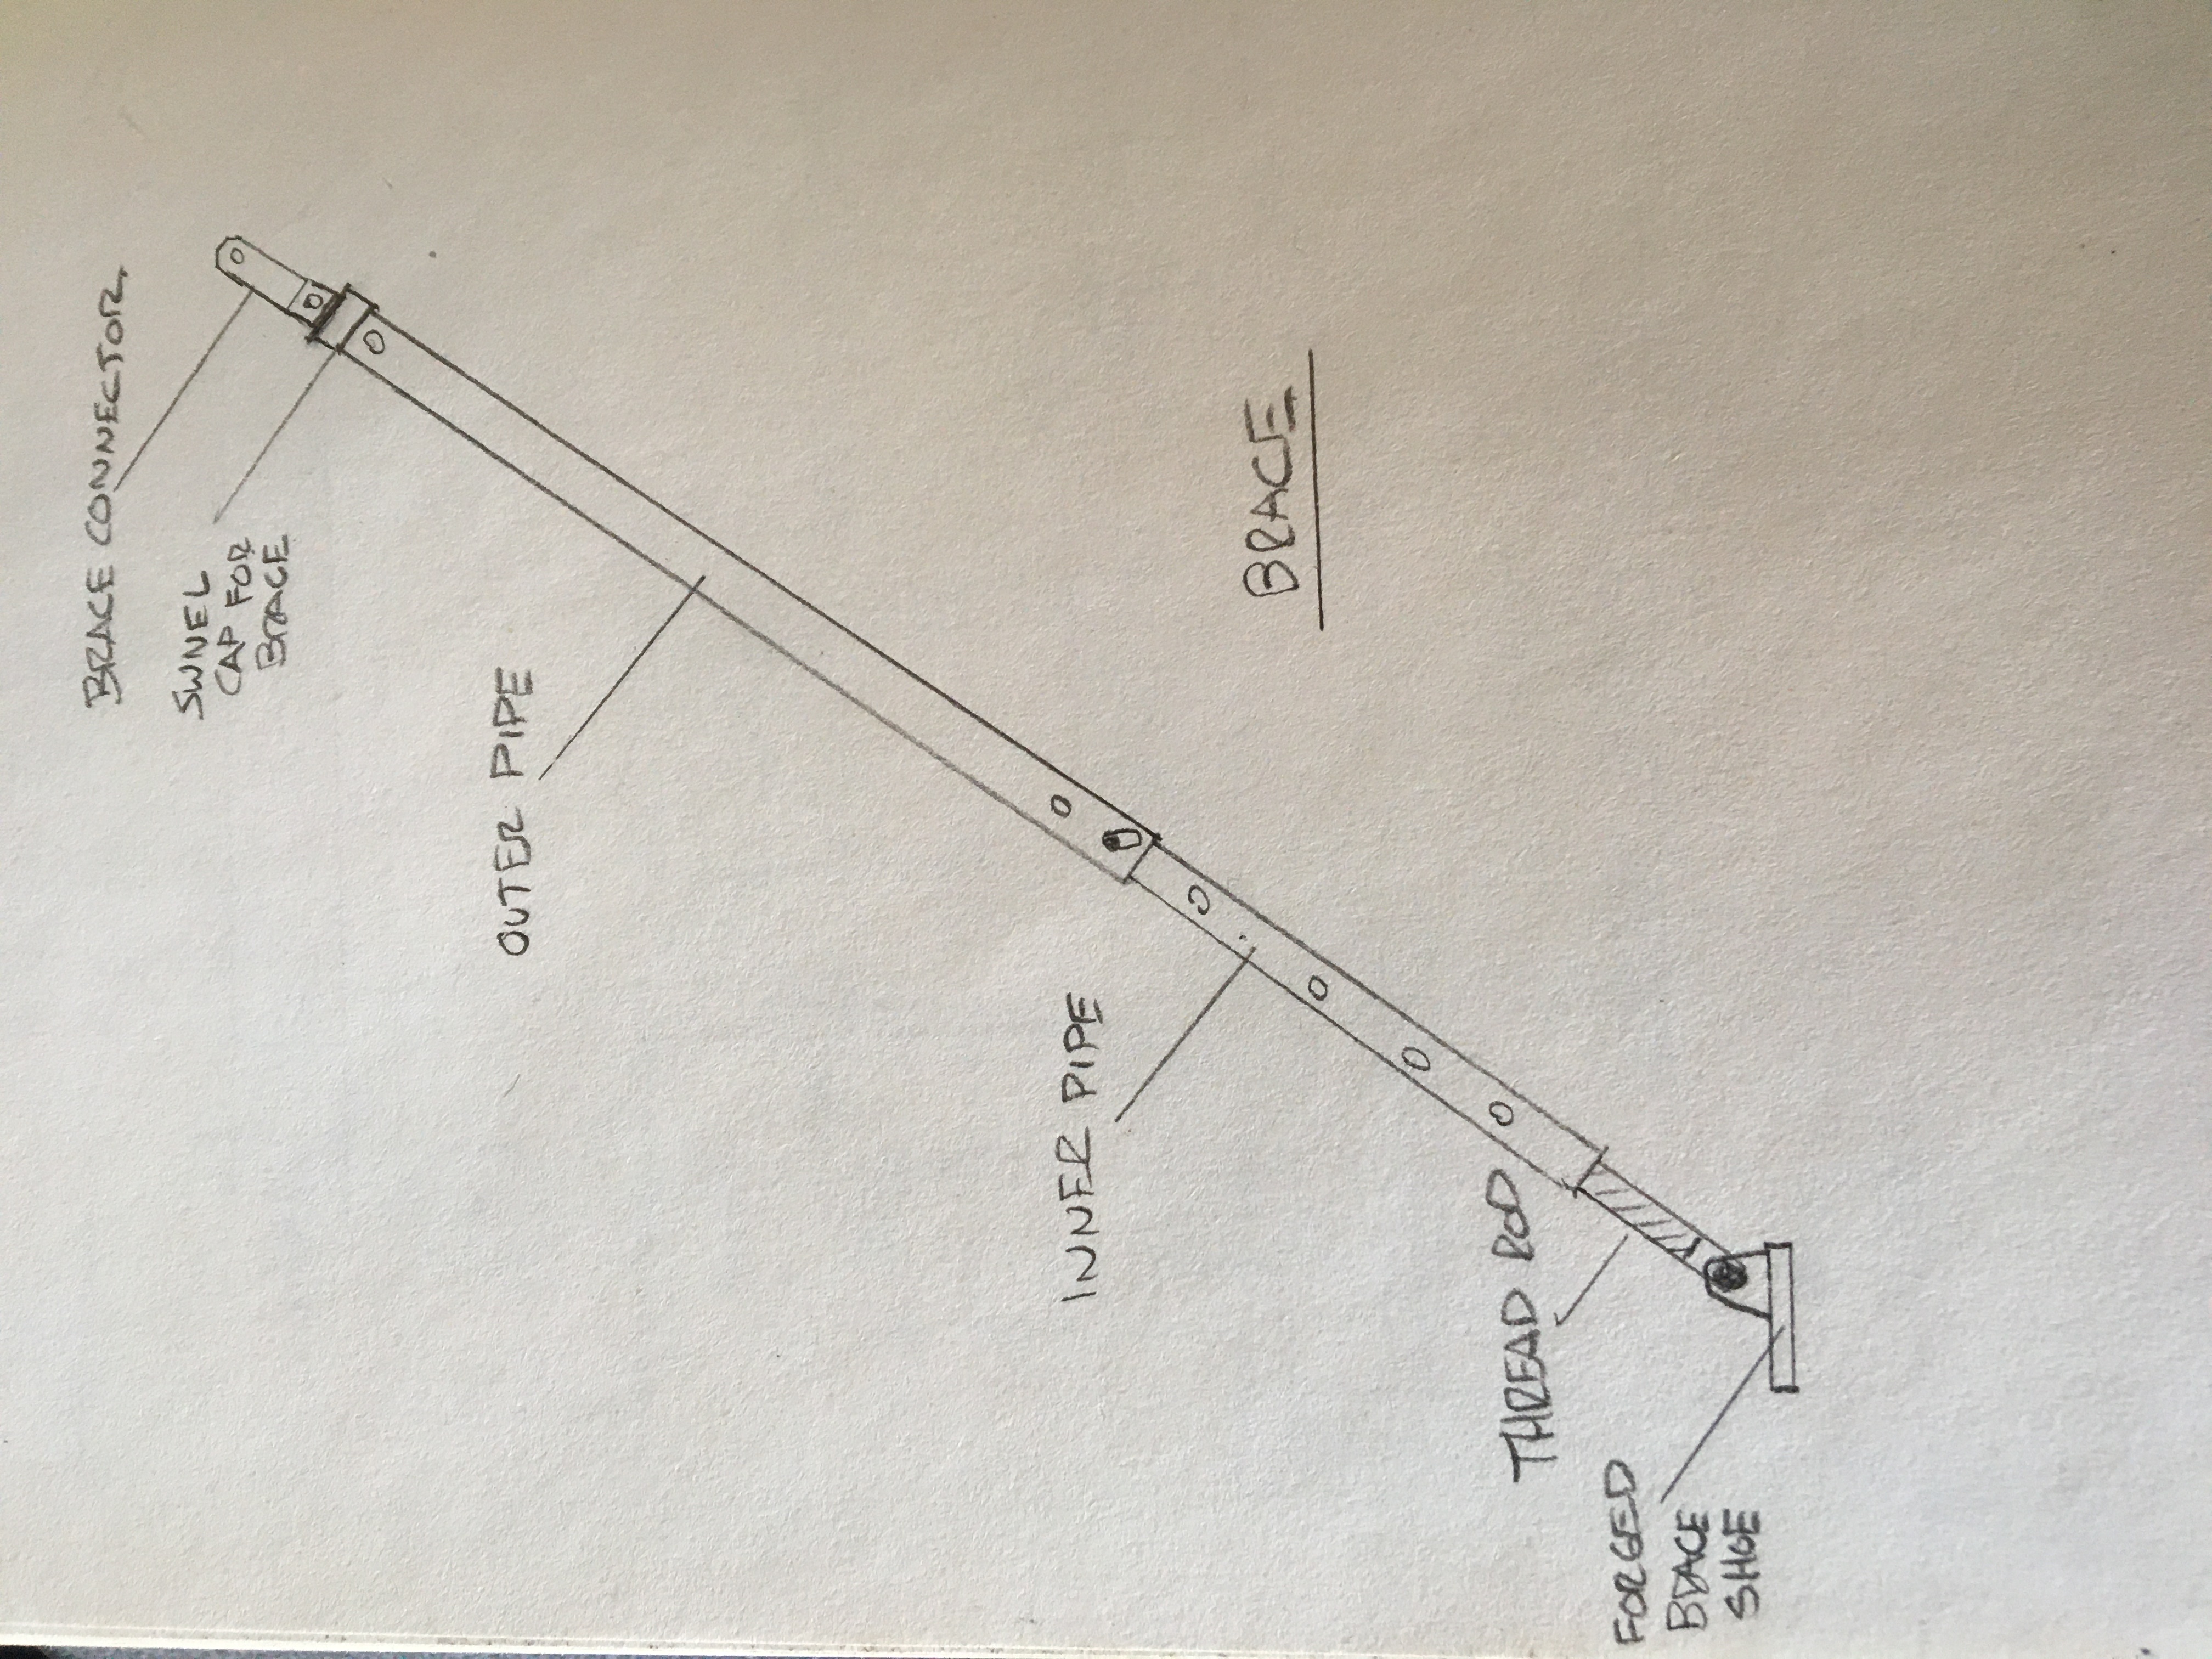 BRACE CONNECTOR
SWIVEL
CAP FOR
BRACE
OUTER PIPE
INNER PIPE
BRACE
THREAD ROD
FORGED
BRACE
SHOE